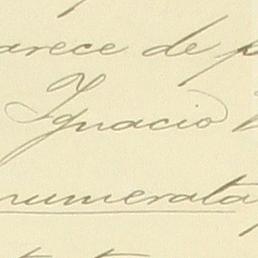 arece de p
Ignacio
numerata,